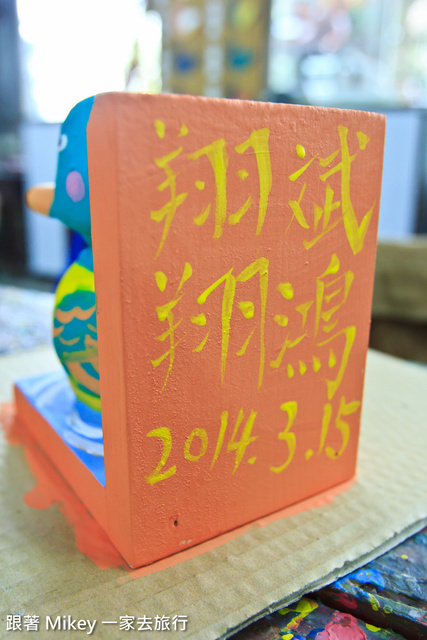 翔斌
翔鴻
2014.3.15
跟著 Mikey 一家去旅行